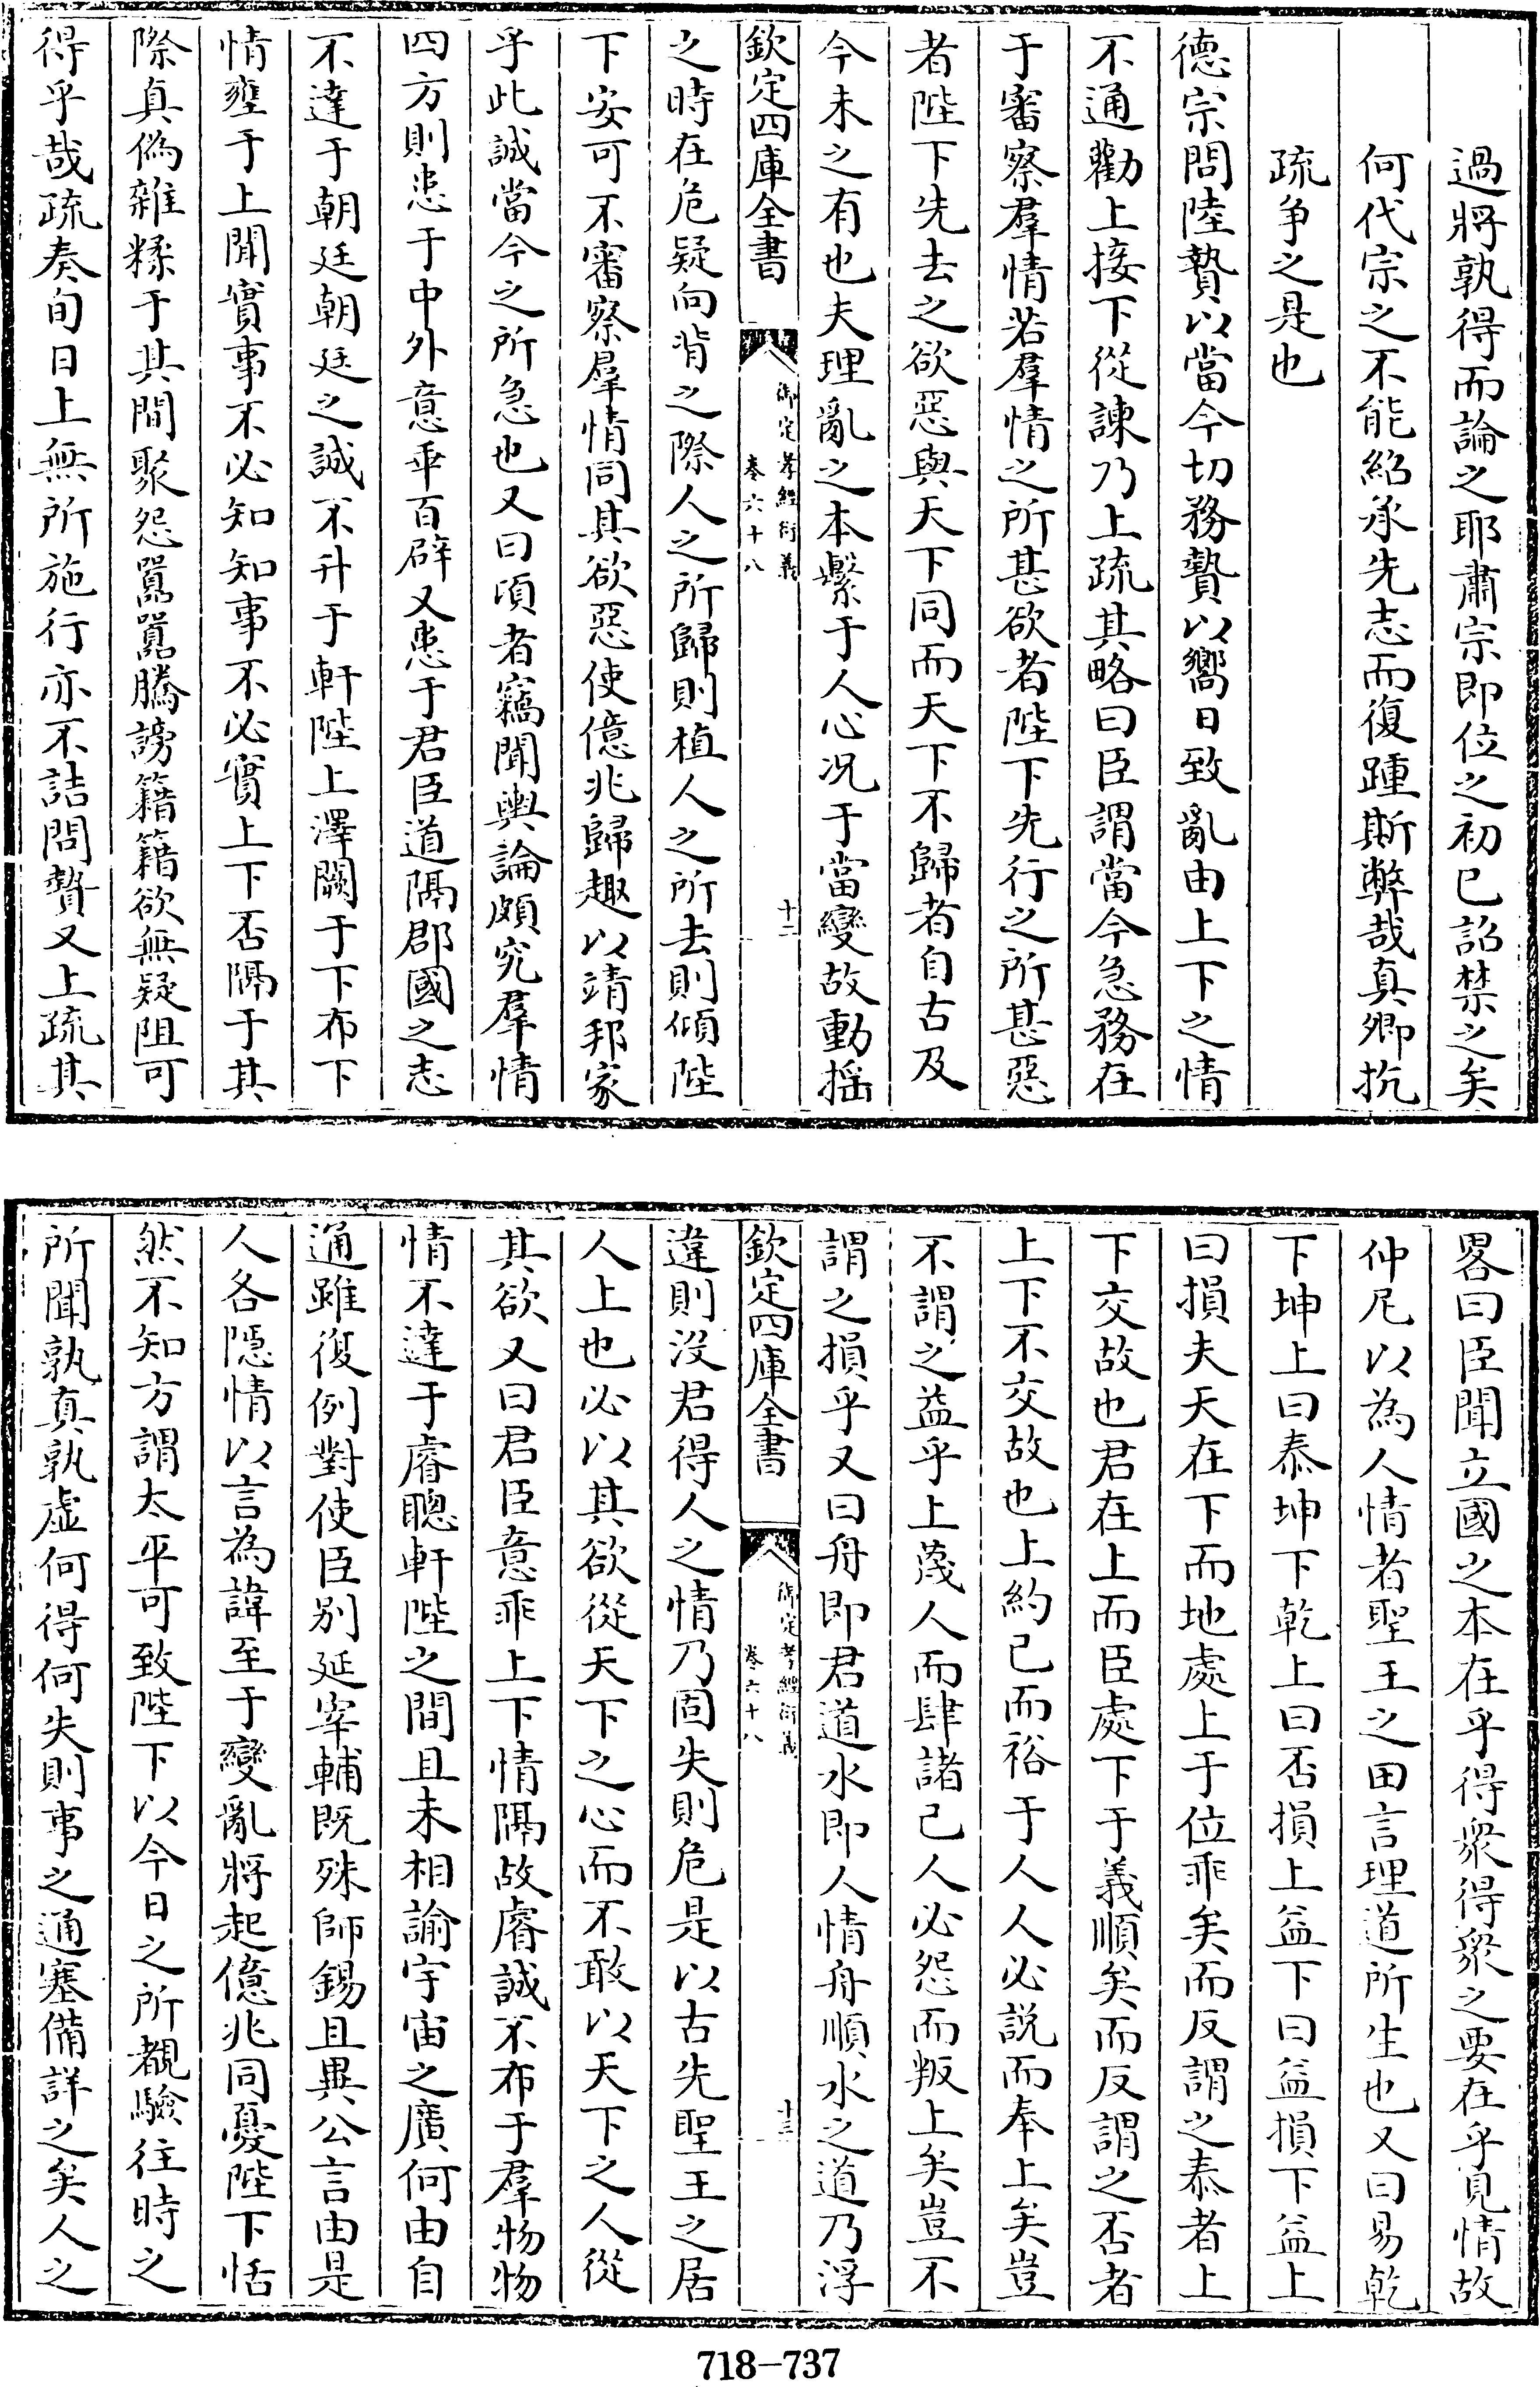 過將孰得而論之耶肅宗即位之初已詔禁之矣
何代宗之不能紹承先志而復踵斯弊哉真卿抗
疏争之是也
德宗問陸贄以當今切務贄以嚮日致亂由上下之情
不通勸上接下從諫乃上疏其略曰臣謂當今急務在
于審察羣情若羣情之所甚欲者陛下先行之所甚惡
者陛下先去之欲惡與天下同而天下不歸者自古及
今未之有也夫理亂之本繫于人心况于當變故動揺
欽定四庫全書
御定孝經衍義
卷六十八
十二
之時在危疑向背之際人之所歸則植人之所去則傾陛
下安可不審察羣情同其欲惡使億兆歸趣以靖邦家
乎此誠當今之所急也又曰頃者竊聞輿論頗究羣情
四方則患于中外意乖百辟又患于君臣道隔郡國之志
不達于朝廷朝廷之誠不升于軒陛上澤闕于下布下
情壅于上聞實事不必知知事不必實上下否隔于其
際真偽雜糅于其間聚怨囂囂騰謗籍籍欲無疑阻可
得乎哉疏奏旬日上無所施行亦不詰問贄又上疏其
畧曰臣聞立國之本在乎得衆得衆之要在乎見情故
仲尼以為人情者聖王之田言理道所生也又曰易乾
下坤上曰泰坤下乾上曰否損上益下曰益損下益上
曰損夫天在下而地處上于位乖矣而反謂之泰者上
下交故也君在上而臣處下于義順矣而反謂之否者
上下不交故也上約已而裕于人人必説而奉上矣豈
不謂之益乎上蔑人而肆諸己人必怨而叛上矣豈不
謂之損乎又曰舟即君道水即人情舟順水之道乃浮
欽定四庫全書
御定孝經衍義
卷六十八
十三
違則没君得人之情乃固失則危是以古先聖王之居
人上也必以其欲從天下之心而不敢以天下之人從
其欲又曰君臣意乖上下情隔故睿誠不布于羣物物
情不達于睿聰軒陛之間且未相諭宇宙之廣何由自
通雖復例對使臣别延宰輔既殊師錫且異公言由是
人各隱情以言為諱至于變亂將起億兆同憂陛下恬
然不知方謂太平可致陛下以今日之所覩驗往時之
所聞孰真孰虚何得何失則事之通塞備詳之矣人之
718-737